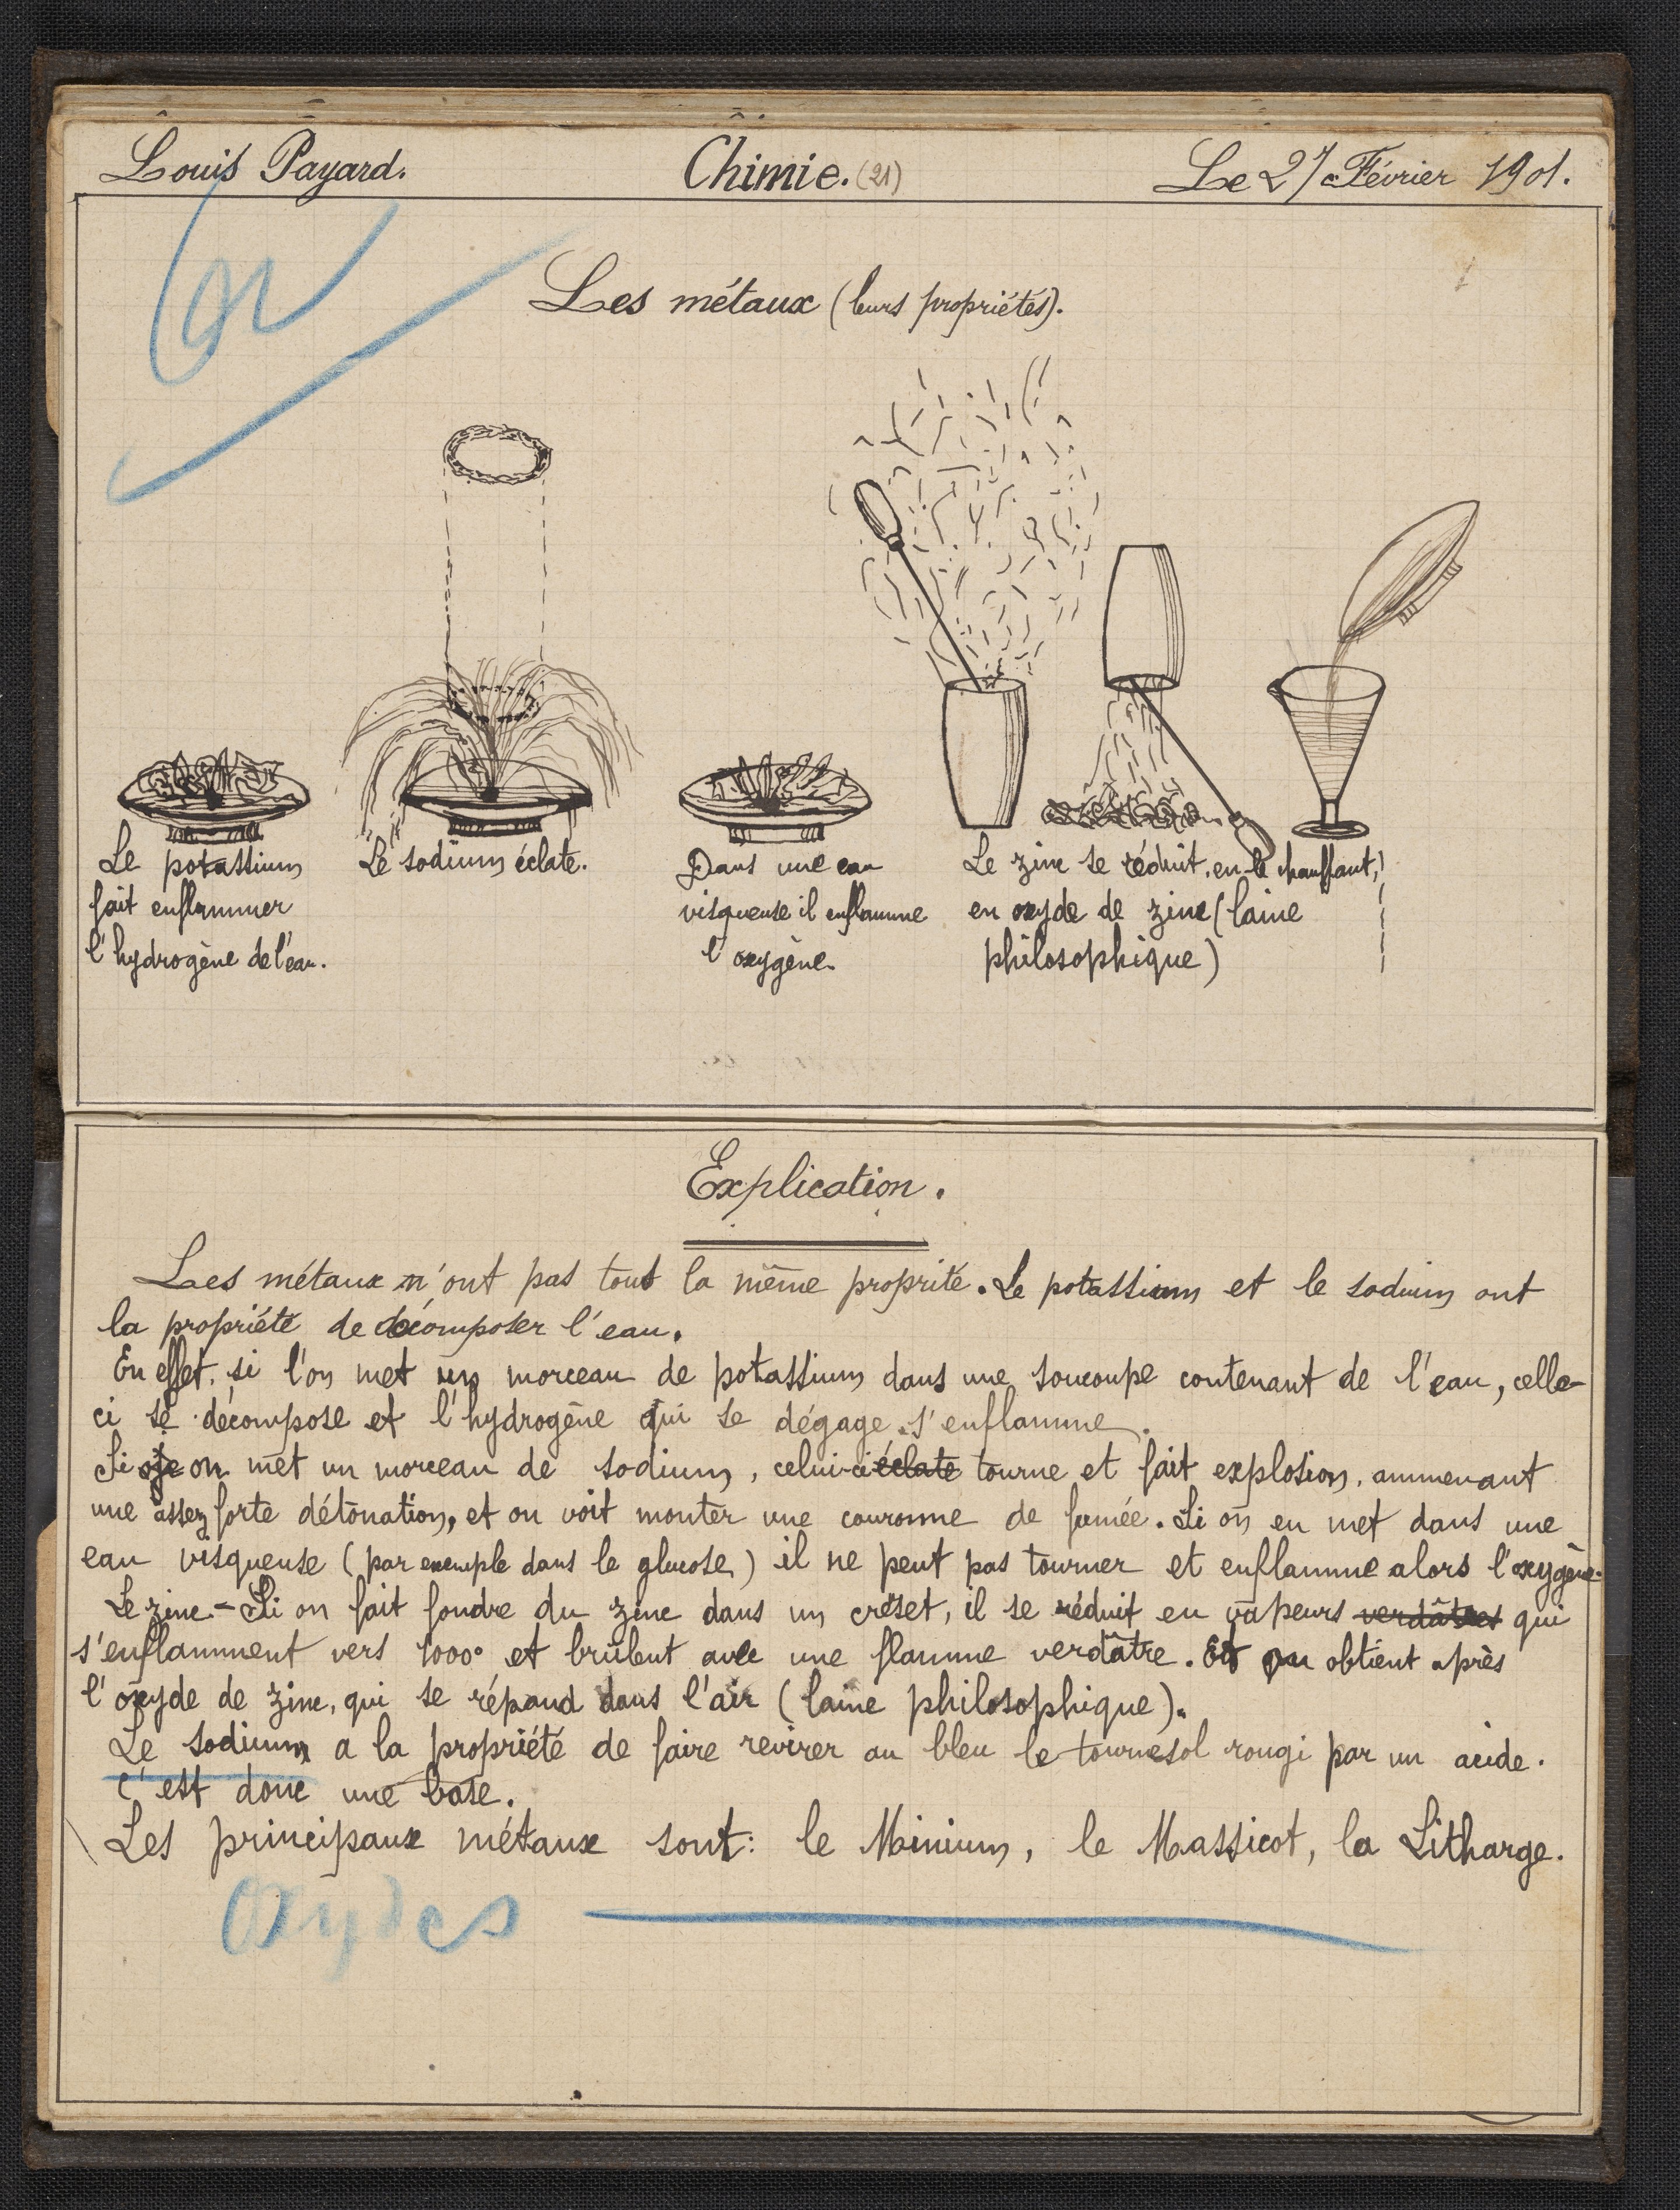 Louis Payard. Chimie. (21) Le 27 Février 1901.
Les métaux (leurs propriétés).
Le potassium
fait enflammer
l'hydrogène de l'eau.
Le sodium éclate.
Dans une eau
visqueuse il enflamme
l'oxygène.
Le zinc se réduit, en le chauffant,
en oxyde de zinc (laine
philosophique)
Explication.
Les métaux n'ont pas tout la même proprité. Le potassium et le sodium ont
la propriété de décomposer l'eau.
En effet, si l'on met un morceau de potassium dans une soucoupe contenant de l'eau, celle-
ci se décompose et l'hydrogène qui se dégage s'enflamme.
Si on met un morceau de sodium, celui-ci éclate tourne et fait explosion, ammenant
une assez forte détonation, et on voit monter une couronne de fumée. Si on en met dans une
eau visqueuse (par exemple dans le glucose) il ne peut pas tourner et enflamme alors l'oxygène.
Le zinc - Si on fait fondre du zinc dans un creset, il se réduit en vapeurs verdâtres qui
s'enflamment vers 1000° et brûlent avec une flamme verdâtre. Et on obtient après
l'oxyde de zinc, qui se répand dans l'air (laine philosophique).
Le sodium a la propriété de faire revirer au bleu le tournesol rougi par un acide.
C'est donc une base.
Les principaux métaux sont: le Minium, le Massicot, la Litharge.
Oxydes